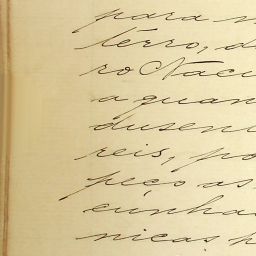 para
terro, d
ro Nacio
a quan
dusen
reis, po
peço as
cunha
nicas p